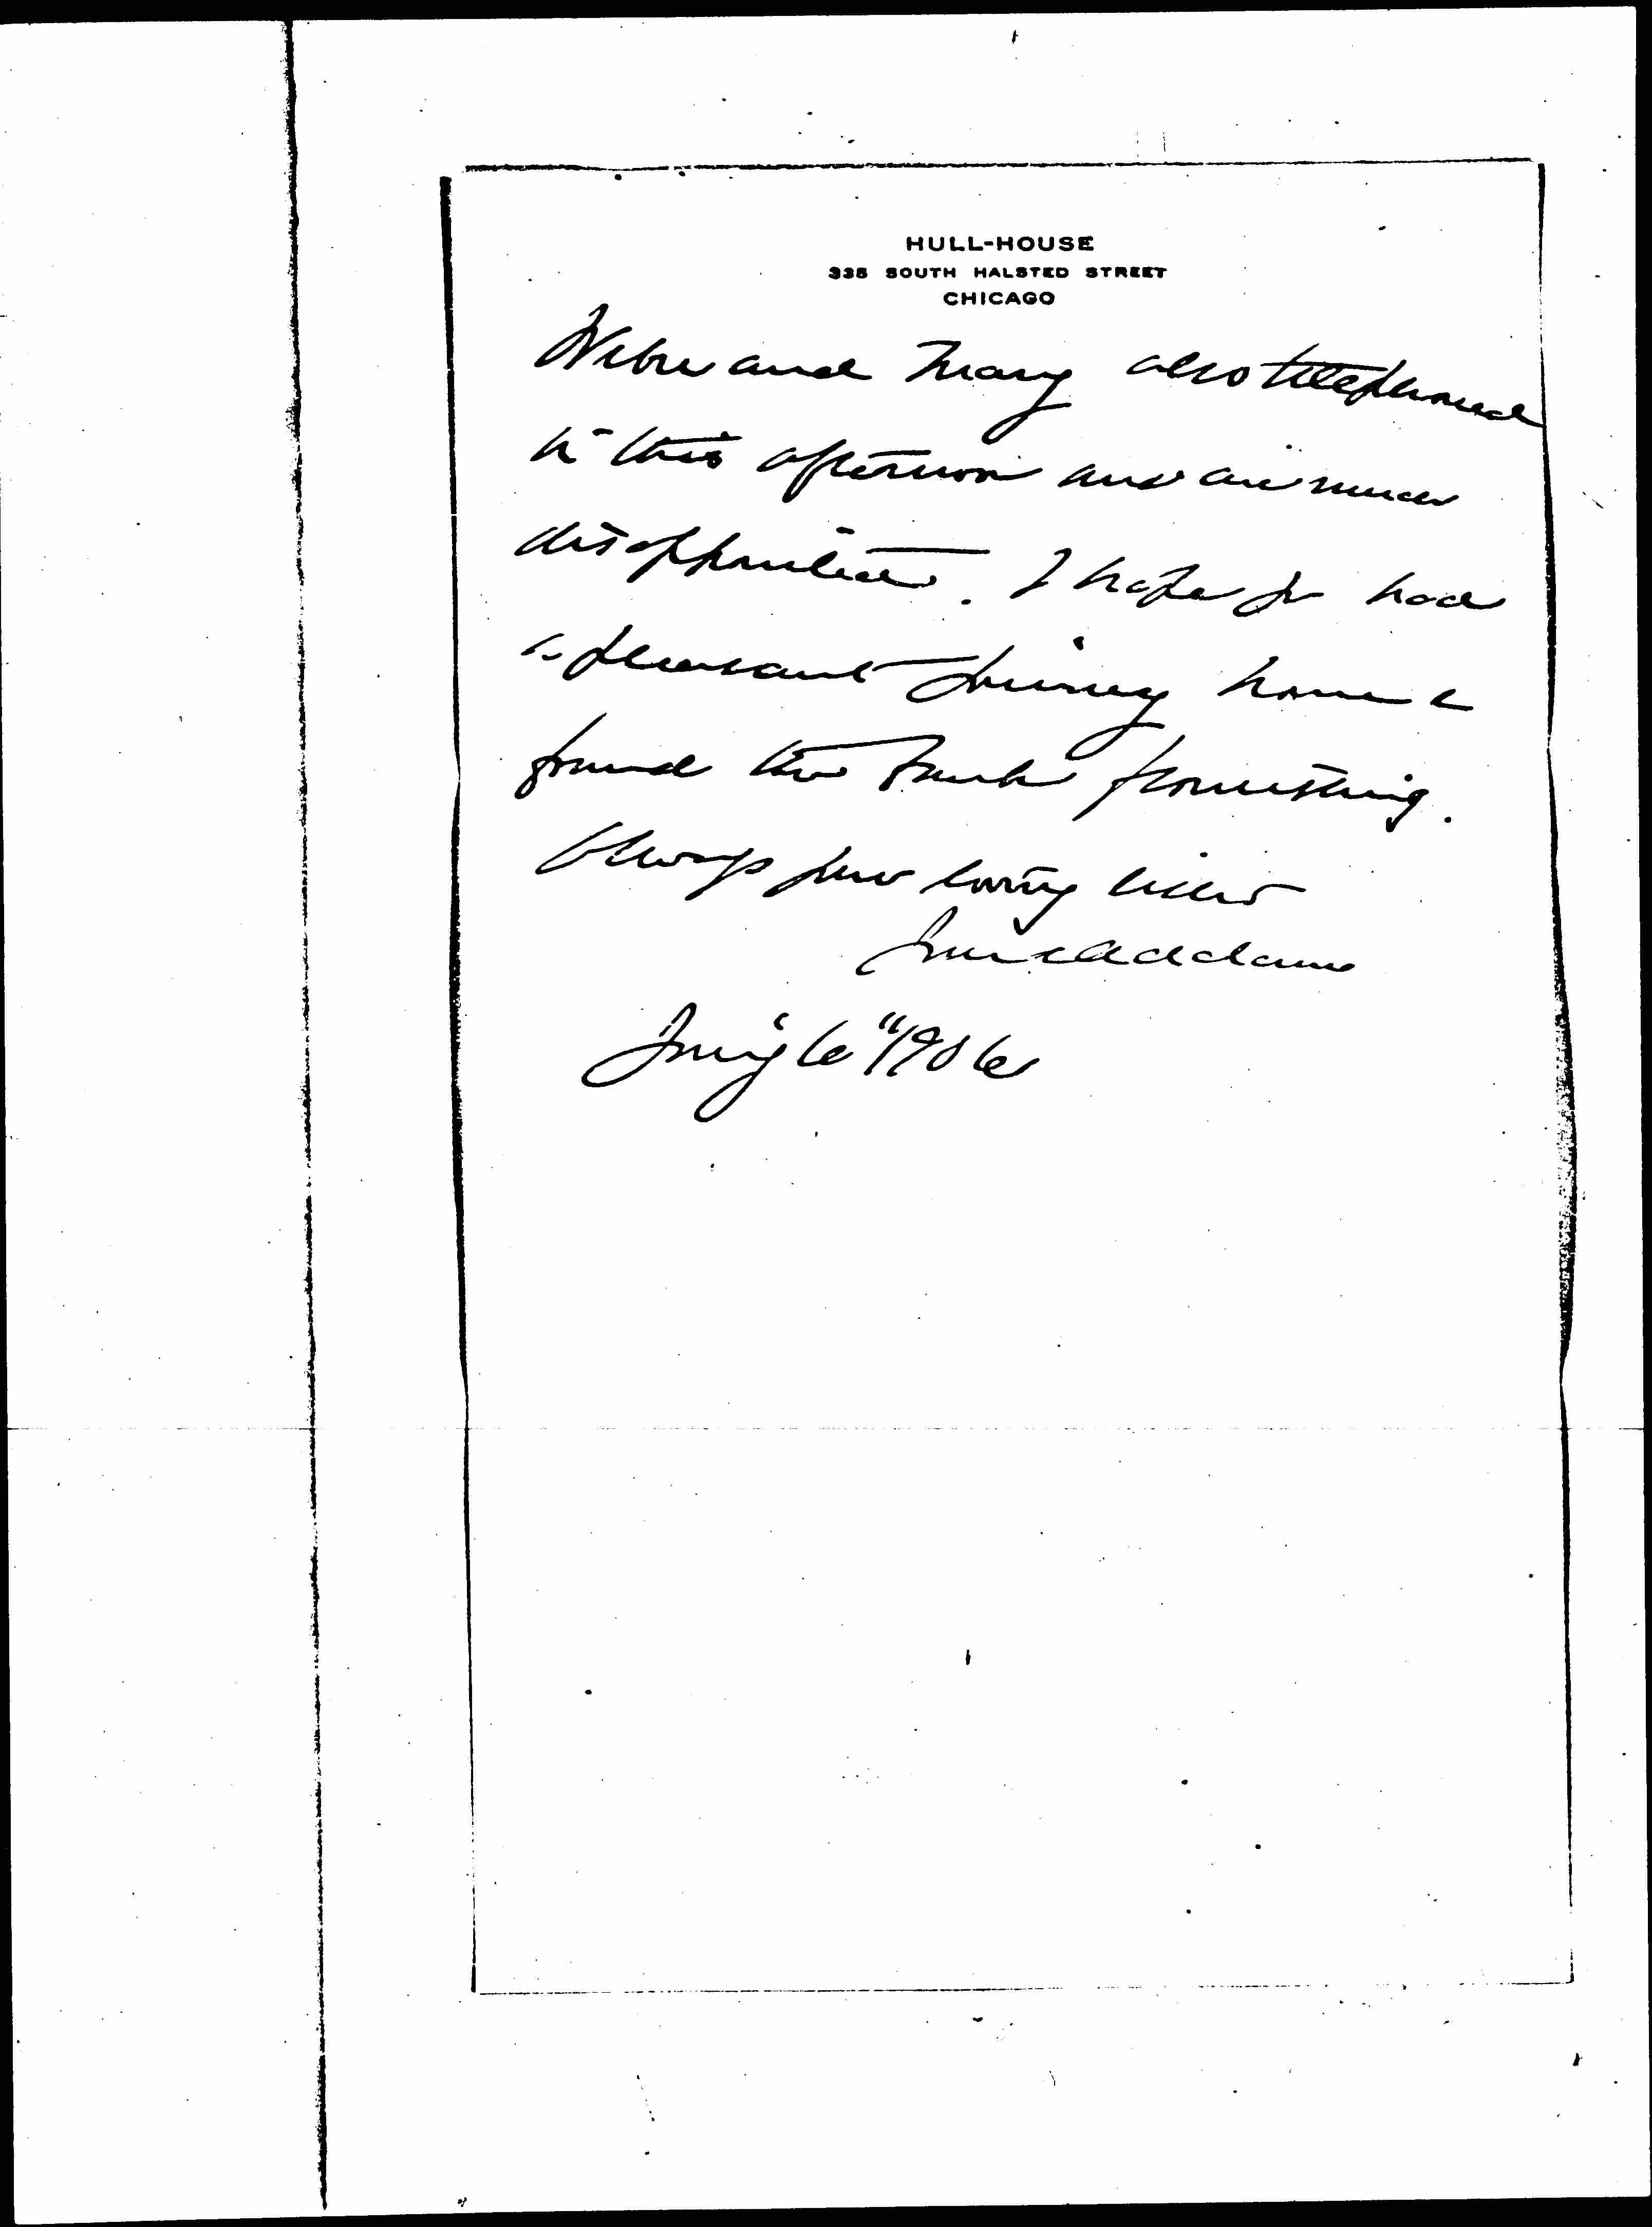 HULL-HOUSE
335 SOUTH HALSTED STREET
CHICAGO
and Mary also telephoned
in this afternoon and are much
disappointed. I hope yr had
a pleasant journey home &
found the bank flourishing.
Always your loving sister
Jane Addams
July 6" 1906